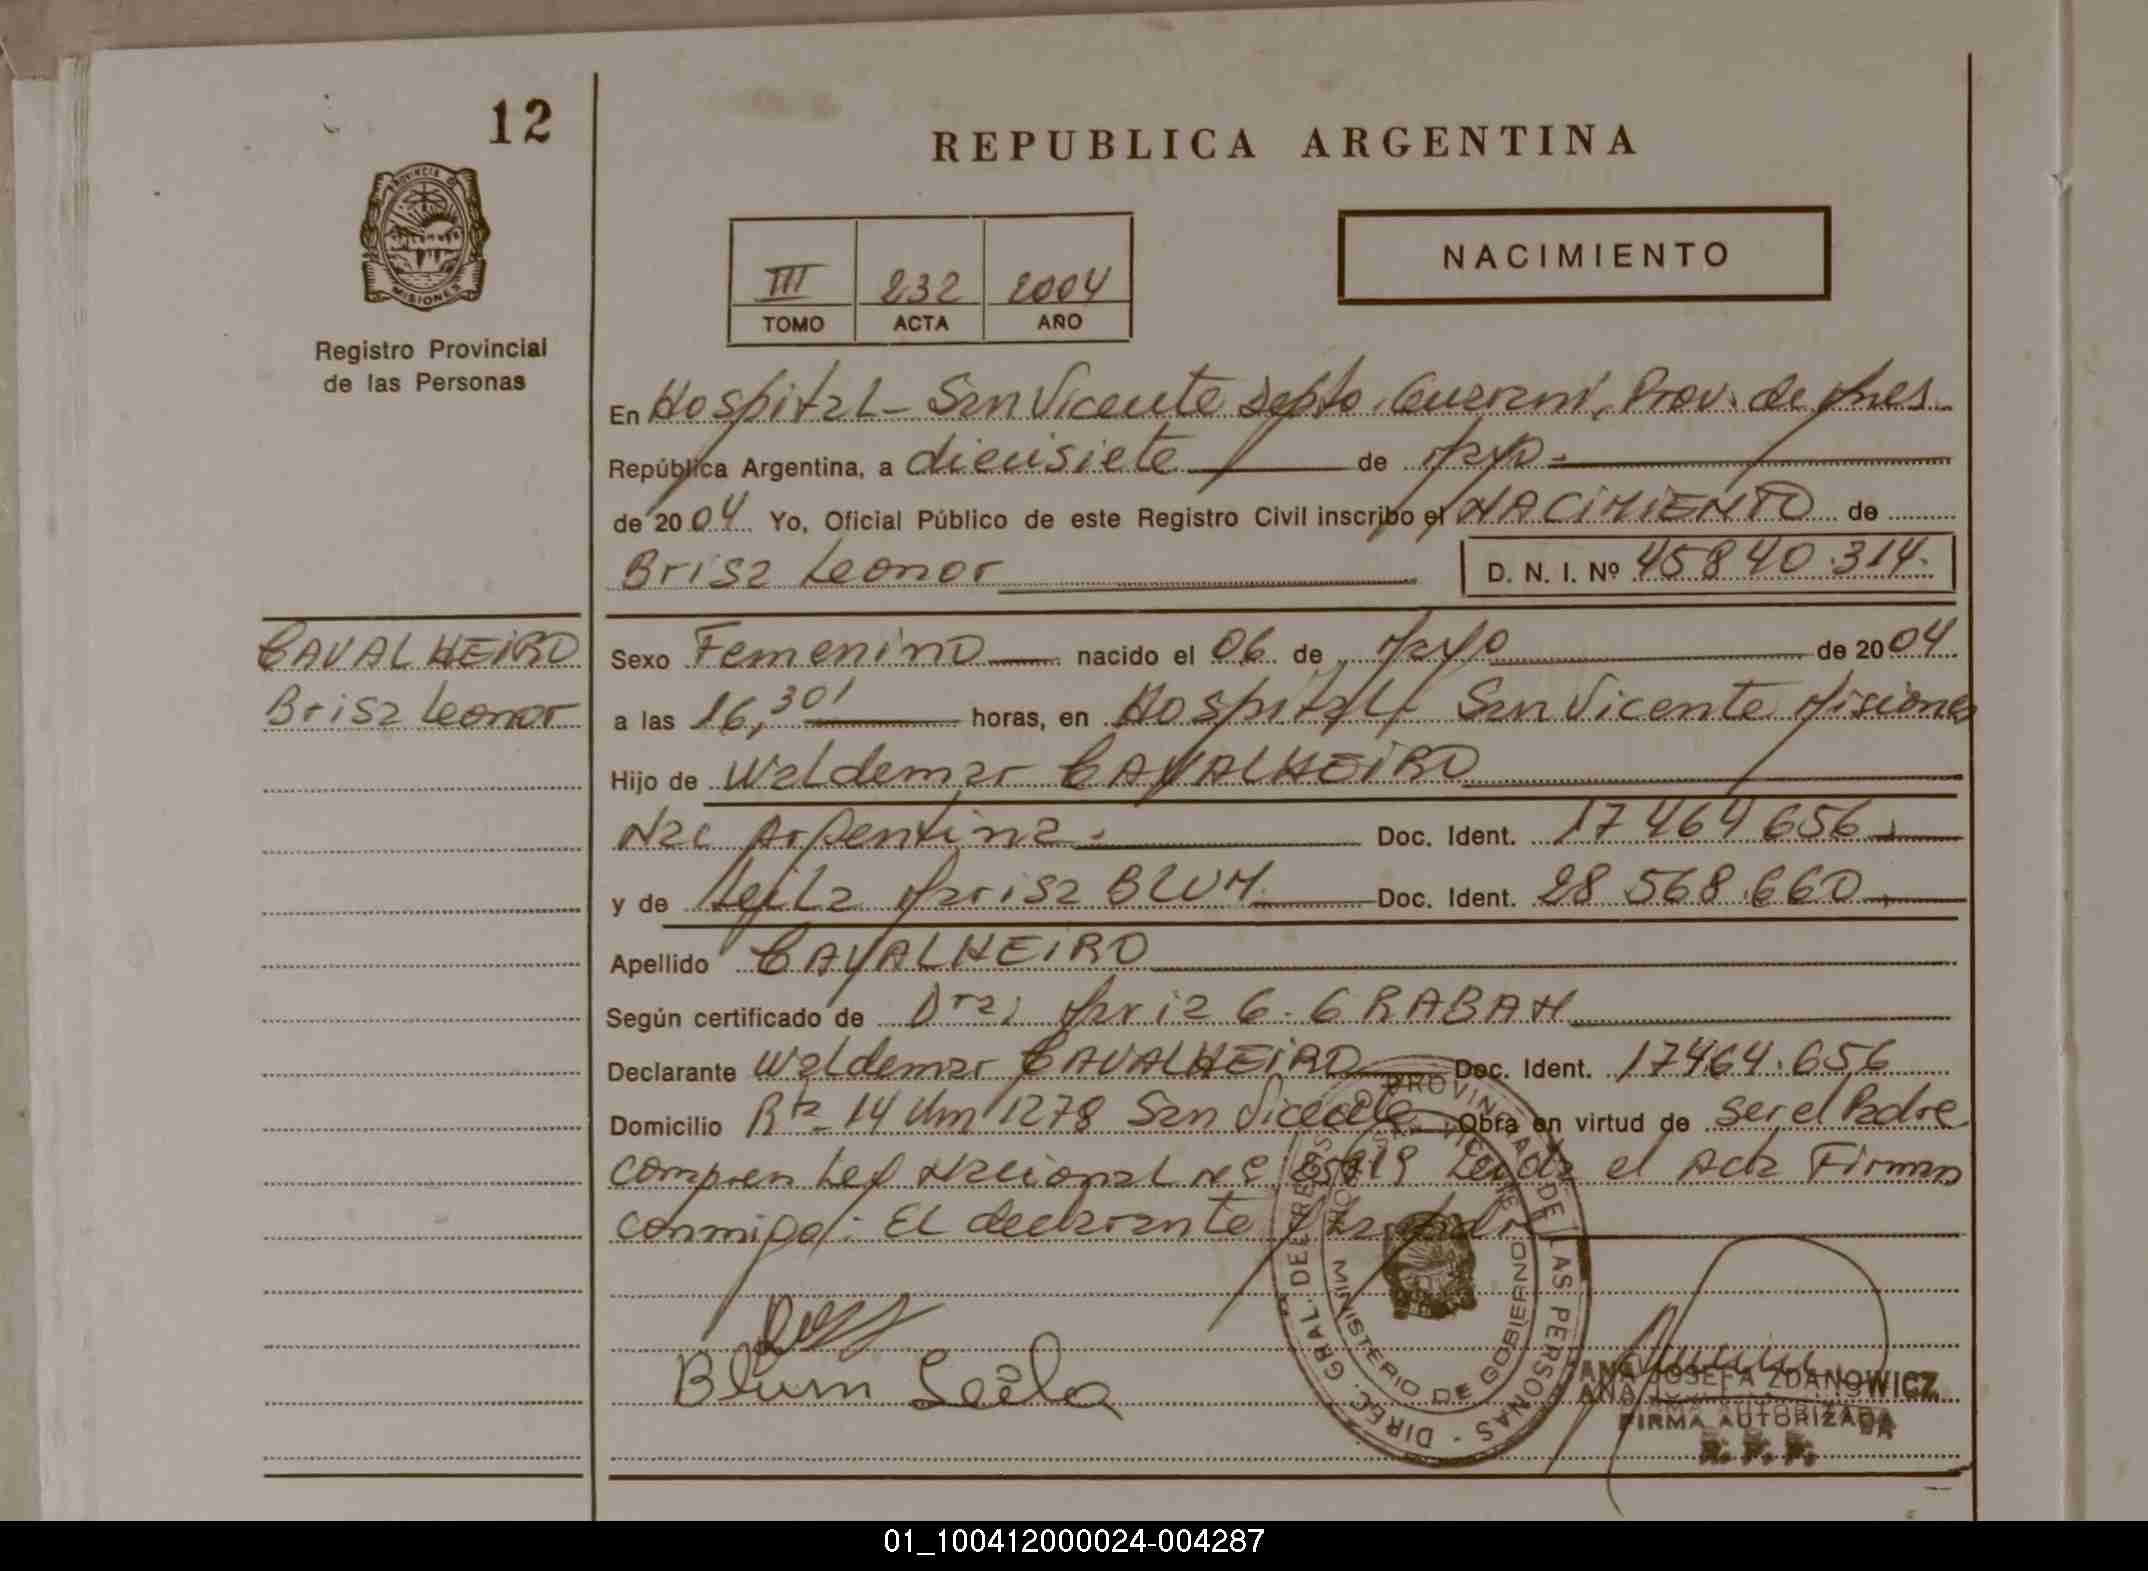 12
REPUBLICA ARGENTINA
PROVINCIA DE
MISIONES
Registro Provincial
de las Personas
III 232 2004
TOMO ACTA AÑO
NACIMIENTO
En Hospital - San Vicente Depto. Guarani, Prov. de Mnes
República Argentina, a diecisiete de Mayo -
de 2004 Yo, Oficial Público de este Registro Civil inscribo el NACIMIENTO de
Brisa Leonor D. N. I. Nº 45840.314.
CAVALHEIRO
Brisa Leonor
Sexo Femenino nacido el 06 de Mayo de 2004
a las 16,30' horas, en Hospital San Vicente Misiones
Hijo de Waldemar CAVALHEIRO
Nac Argentina - Doc. Ident. 17464656
y de Leila Marisa BLUM Doc. Ident. 28 568.660
Apellido CAVALHEIRO
Según certificado de Dra. Maria G. GRABAN
Declarante Waldemar CAVALHEIRO Doc. Ident. 17464.656
Domicilio Rta - 14 Km 1278 San Vicente Obra en virtud de ser el Padre
Compren Ley Nacional Nº Leida el Acta Firman
conmigo: El declarante y la
Blum Leila
DIREC. GRAL. DE PROVINCIAL DE LAS PERSONAS
MINISTERIO DE GOBIERNO
ANA JOSEFA ZDANOWICZ
FIRMA AUTORIZADA
R. P. P.
01_100412000024-004287